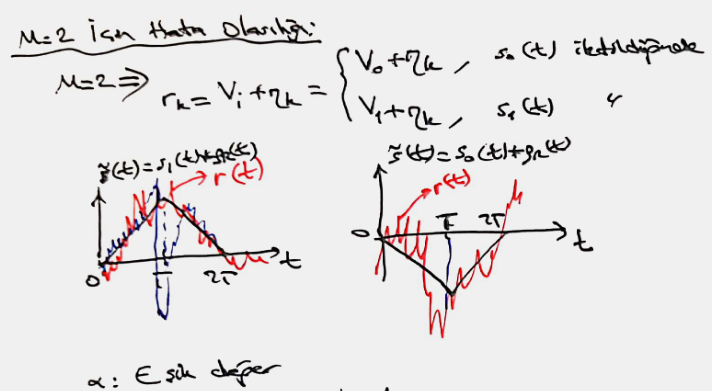 M=2 İçin Hata Olasılığı:
M=2 ⇒ r_k = V_i + η_k = { V_0 + η_k , s_0(t) iletildiğinde
V_1 + η_k , s_1(t) "
s̃(t) = s_1(t) + g_R(t)
r(t)
0 T 2T t
s̃(t) = s_0(t) + g_R(t)
r(t)
0 T 2T t
α: Eşik değer